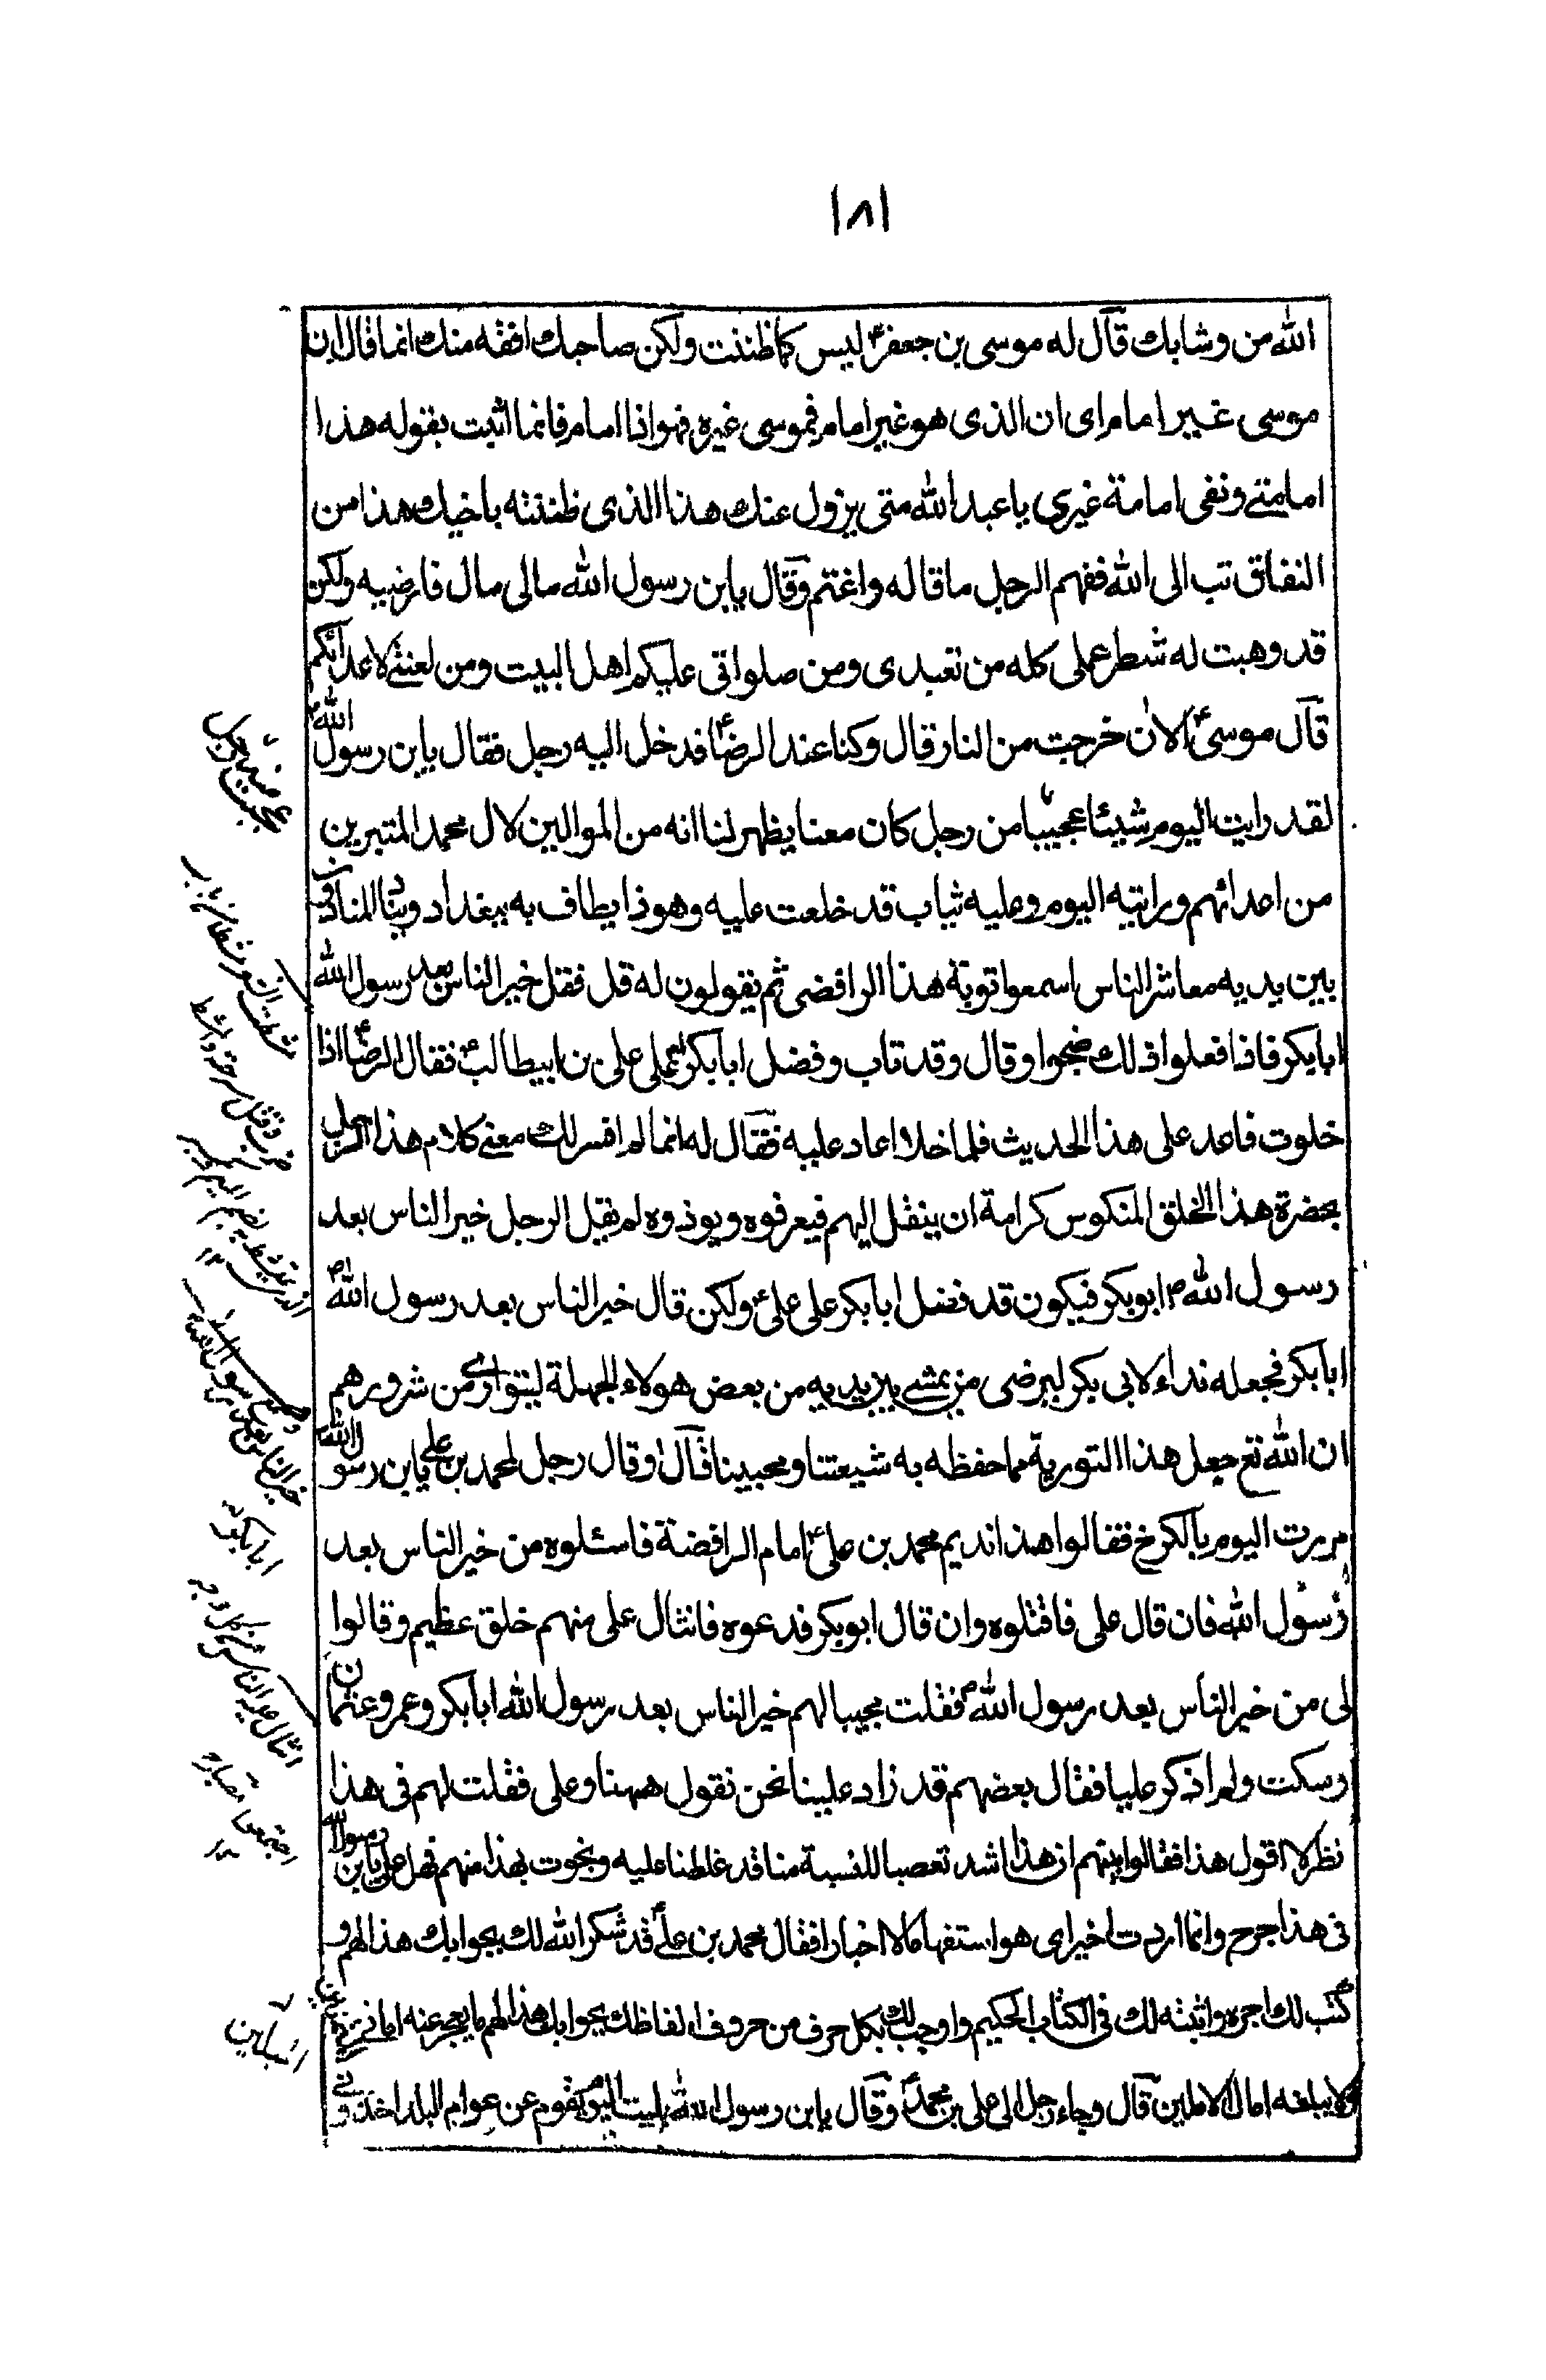 ١٨١
الله من وشا بك قال له موسى بن جعفرؑ ليس كما ظننت ولكن صاحبك افقه منك انما قال ان
موسى غير امام اى ان الذى هو غير امام فموسى غيره فهو اذا امام فانما اثبت بقوله هذا
امامتى ونفى امامة غيرى يا عبد الله متى يزول عنك هذا الذى ظننته باخيك هذا من
النفاق تب الى الله ففهم الرجل ما قاله واغتم وقال يابن رسول الله مالى مال فارضيه ولكن
قد وهبت له شطر عملى كله من تعبدى ومن صلواتى عليكم اهل البيت ومن لعنتى لاعدائكم
قال موسىؑ الان خرجت من النار قال وكنا عند الرضاؑ فدخل اليه رجل فقال يابن رسول الله
لقد رايت اليوم شيئا عجيبا من رجل كان معنا يظهر لنا انه من الموالين لال محمد المتبرين
من اعدائهم ورايته اليوم وعليه ثياب قد خلعت عليه وهو ذا يطاف به ببغداد وينادى المنادى
بين يديه معاشر الناس اسمعوا توبة هذا الرافضى ثم يقولون له قل فقل خير الناس بعد رسول الله
ابا بكر فاذا فعلوا ذلك ضجوا وقال وقد تاب وفضل ابا بكر على على بن ابيطالبؑ فقال الرضاؑ اذا
خلوت فاعد على هذا الحديث فلما خلا اعاد عليه فقال له انما لم افسر لك معنى كلام هذا الرجل
بحضرة هذا الخلق المنكوس كرامة ان ينقل اليهم فيعرفوه ويوذوه لم يقل الرجل خير الناس بعد
رسول اللهؐ ابو بكر فيكون قد فضل ابا بكر على علىؑ ولكن قال خير الناس بعد رسول اللهؐ
ابا بكر فجعله نداء لابى بكر ليرضى من يمشى بين يديه من بعض هولاء الجهلة ليتوارى من شرورهم
ان الله تع جعل هذا التورية مما حفظه به شيعتنا ومحبينا قال وقال رجل لمحمد بن على يابن رسول الله
مررت اليوم بالكرخ فقالوا هذا نديم محمد بن علىؑ امام الرافضة فاسئلوه من خير الناس بعد
رسول الله فان قال على فاقتلوه وان قال ابو بكر فدعوه فانثال على منهم خلق عظيم وقالوا
لى من خير الناس بعد رسول اللهؐ فقلت مجيبا لهم خير الناس بعد رسول الله ابا بكر وعمر وعثمان
وسكت ولم اذكر عليا فقال بعضهم قد زاد علينا نحن نقول ههنا وعلى فقلت لهم فى هذا
نظر لا اقول هذا فقالوا بينهم ان هذا اشد تعصبا للنسبة منا قد غلطنا عليه ونجوت بهذا منهم فهل على يابن رسول الله
فى هذا جرح وانما اردت اخير اى هو استفهاما لا اخبارا فقال محمد بن علىؑ قد شكر الله لك بجوابك هذا لهم و
كتب لك اجره واثبته لك فى الكتاب الحكيم واوجب لك بكل حرف من حروف الفاظك بجوابك هذا لهم ما يعجز عنه امانى
ولا يبلغه امال الاملين قال وجاء رجل الى على بن محمدؑ وقال يابن رسول الله بليت اليوم بقوم عن عوام البلد اخذونى و
خير الناس بعد رسول الله
ابا بكر